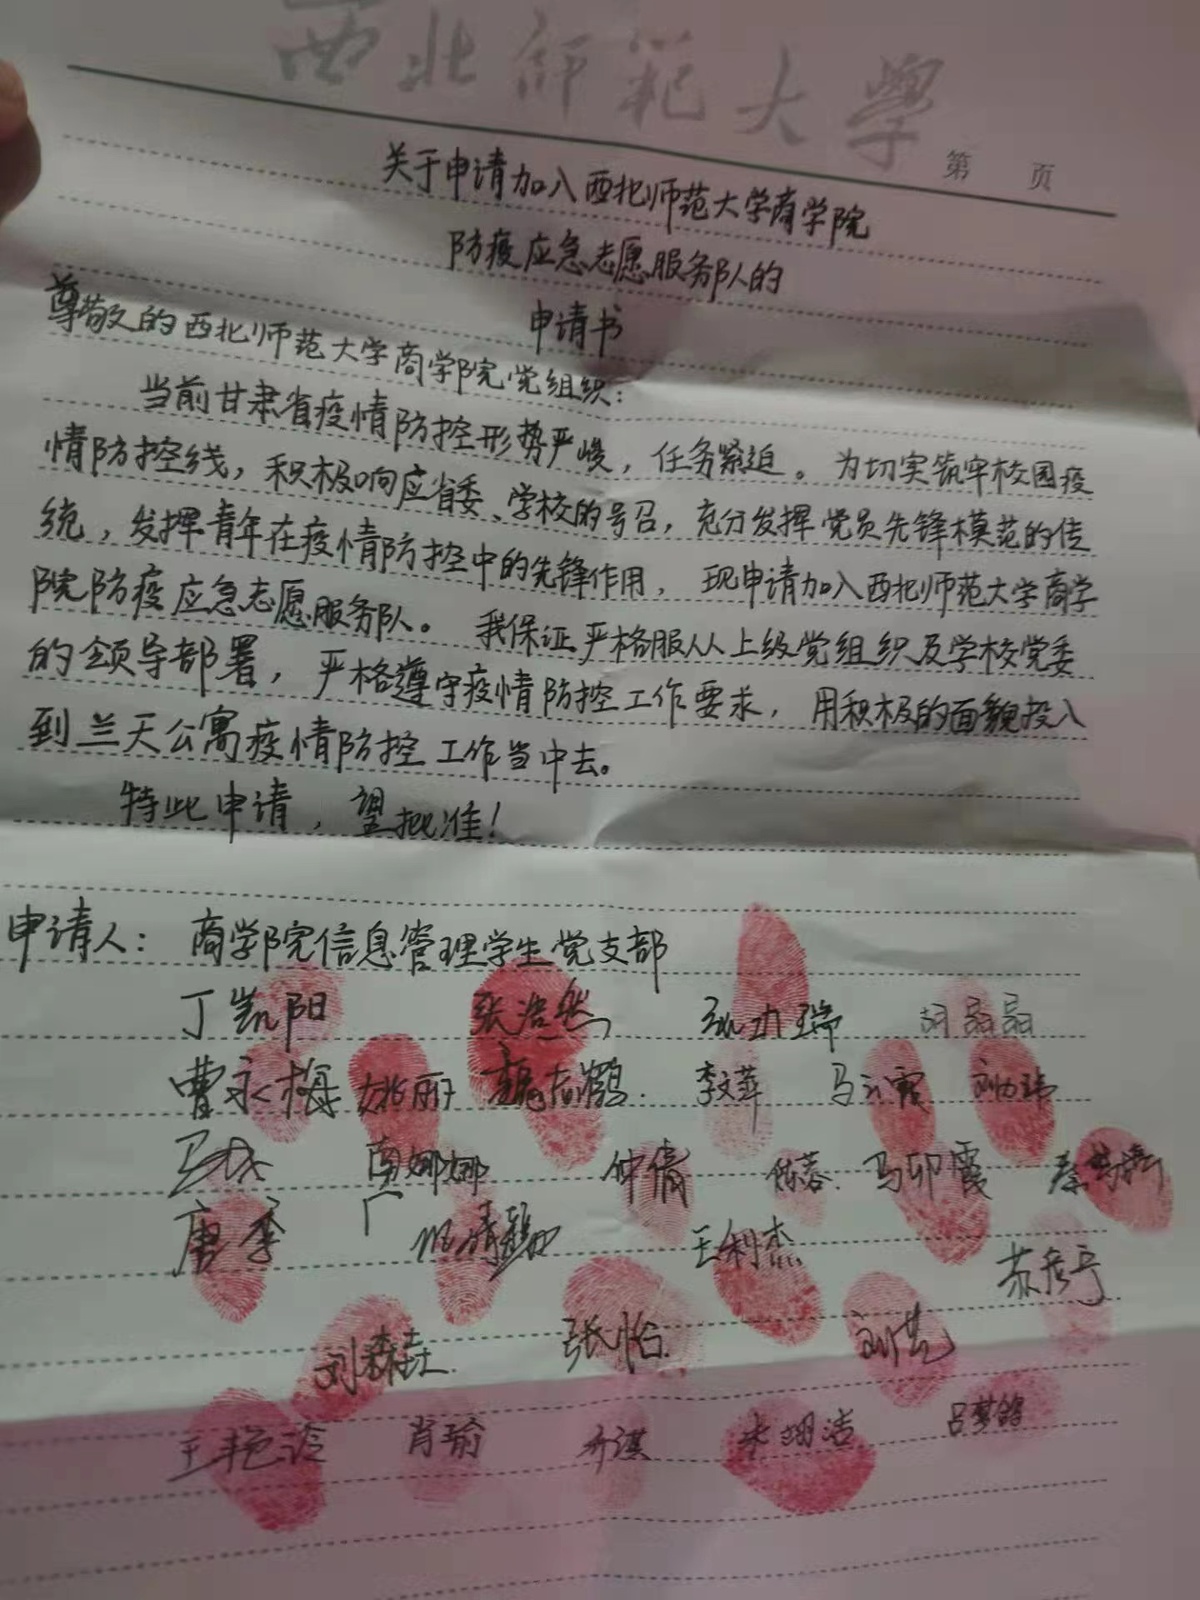 西北师范大学
第 页
关于申请加入西北师范大学商学院
防疫应急志愿服务队的
申请书
尊敬的西北师范大学商学院党组织：
当前甘肃省疫情防控形势严峻，任务紧迫。为切实筑牢校园疫
情防控线，积极响应省委、学校的号召，充分发挥党员先锋模范的传
统，发挥青年在疫情防控中的先锋作用，现申请加入西北师范大学商学
院防疫应急志愿服务队。我保证严格服从上级党组织及学校党委
的领导部署，严格遵守疫情防控工作要求，用积极的面貌投入
到兰天公寓疫情防控工作当中去。
特此申请，望批准！
申请人：商学院信息管理学生党支部
丁凯阳 张浩然 胡晶晶
曹永梅 姚丽 李文萍 马云霞
南娜娜 仲倩 陈蓉 马印霞
唐季 王利杰
苏彦宁
刘森垚 张怡 刘芸
王艳玲 肖瑜 乔淇 吕梦鸽